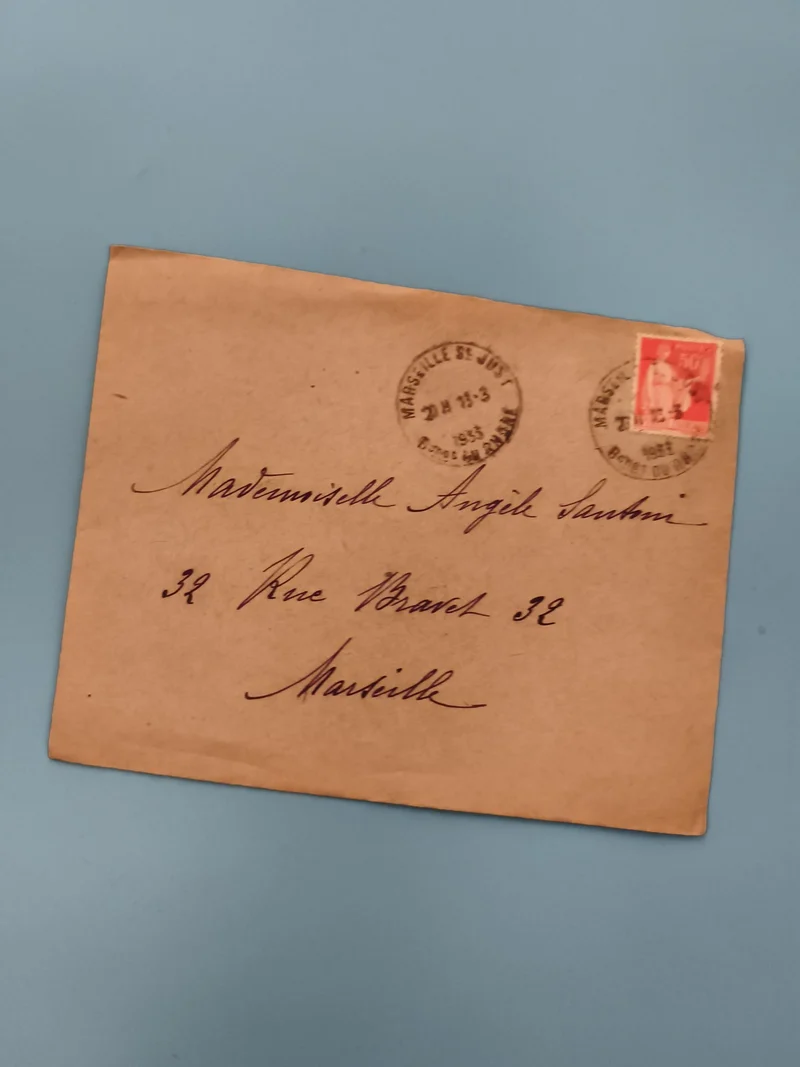 MARSEILLE St JUST
20 H 13-3
1933
Bches DU RHONE
50c
MARSEI
13-3
1933
Bches DU RH
Mademoiselle Angèle Santoni
32 Rue Bravet 32
Marseille